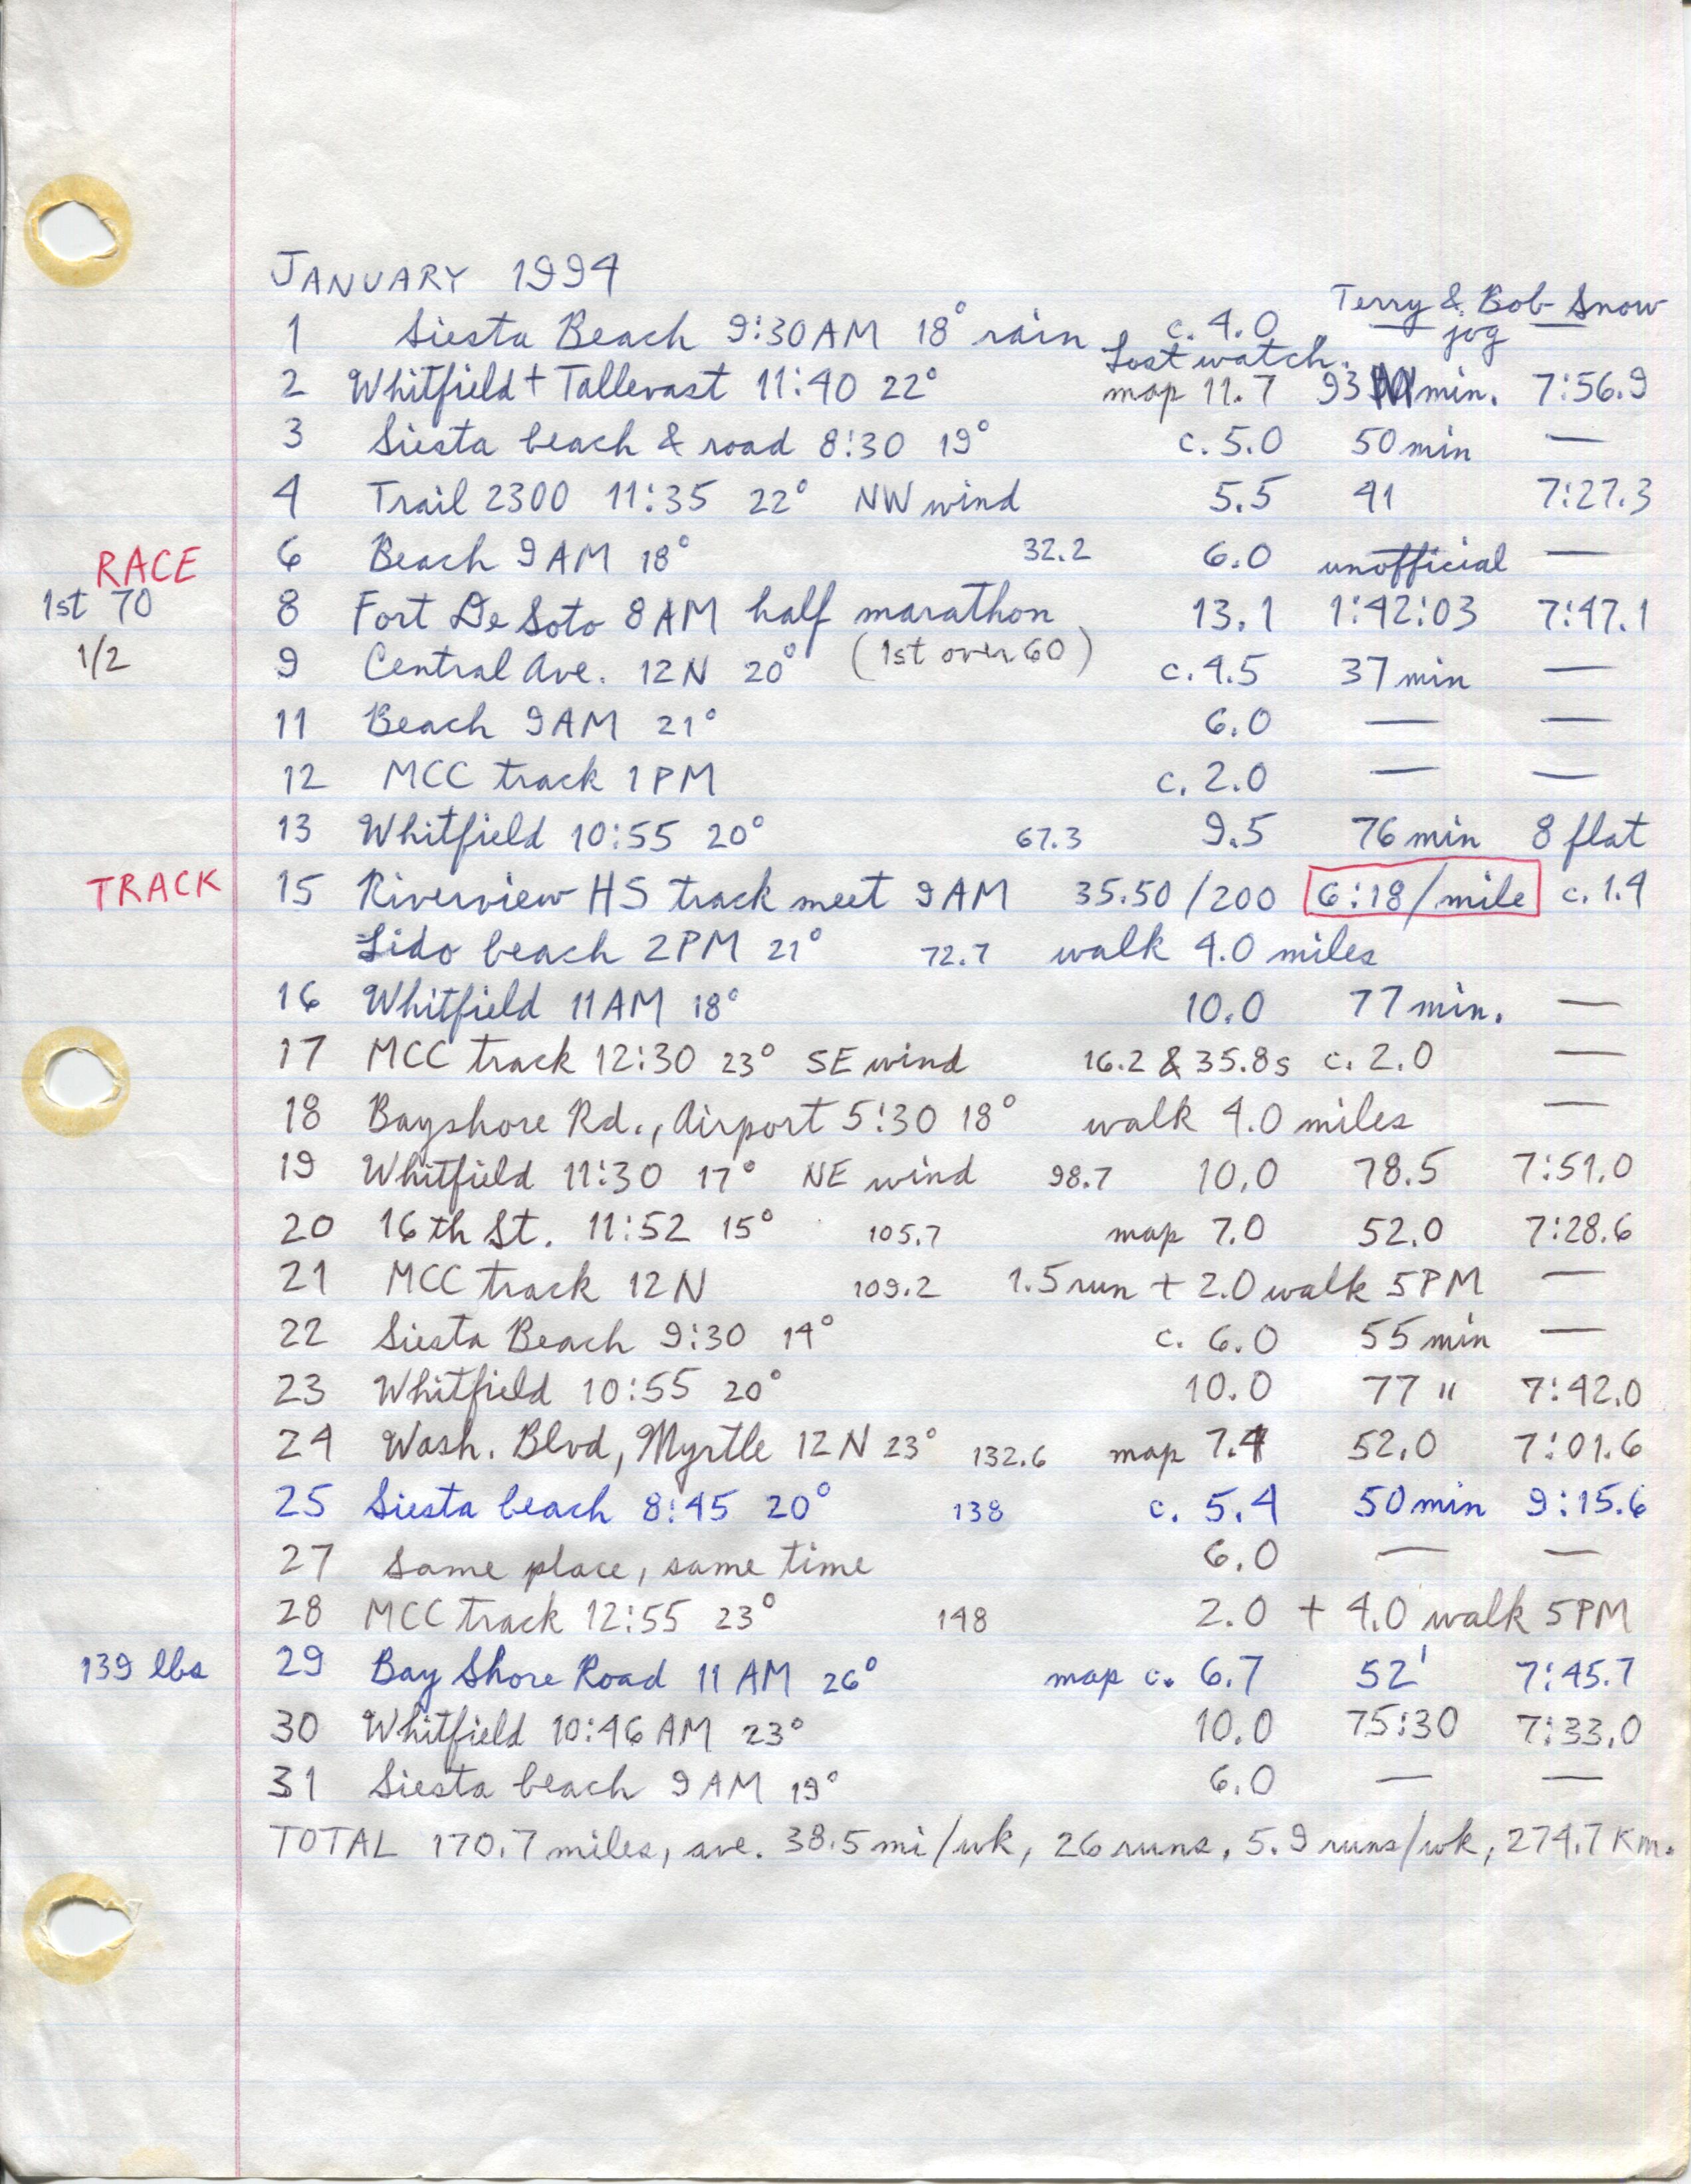 JANUARY 1994
Terry & Bob Snow
1 Siesta Beach 9:30AM 18° rain c. 4.0 jog
Lost watch.
2 Whitfield + Tallevast 11:40 22° map 11.7 93 min. 7:56.9
3 Siesta beach & road 8:30 19° c. 5.0 50 min —
4 Trail 2300 11:35 22° NW wind 5.5 41 7:27.3
RACE 6 Beach 9AM 18° 32.2 6.0 unofficial —
1st 70 8 Fort De Soto 8AM half marathon 13.1 1:42:03 7:47.1
1/2 9 Central Ave. 12N 20° (1st over 60) c. 4.5 37 min —
11 Beach 9AM 21° 6.0 — —
12 MCC track 1PM c. 2.0 — —
13 Whitfield 10:55 20° 67.3 9.5 76 min 8 flat
TRACK 15 Riverview HS track meet 9AM 35.50/200 6:18/mile c. 1.4
Lido beach 2PM 21° 72.7 walk 4.0 miles
16 Whitfield 11AM 18° 10.0 77 min. —
17 MCC track 12:30 23° SE wind 16.2 & 35.8s c. 2.0 —
18 Bayshore Rd., Airport 5:30 18° walk 4.0 miles —
19 Whitfield 11:30 17° NE wind 98.7 10.0 78.5 7:51.0
20 16th St. 11:52 15° 105.7 map 7.0 52.0 7:28.6
21 MCC track 12N 109.2 1.5 run + 2.0 walk 5PM —
22 Siesta Beach 9:30 14° c. 6.0 55 min —
23 Whitfield 10:55 20° 10.0 77 " 7:42.0
24 Wash. Blvd, Myrtle 12N 23° 132.6 map 7.4 52.0 7:01.6
25 Siesta beach 8:45 20° 138 c. 5.4 50 min 9:15.6
27 Same place, same time 6.0 — —
28 MCC track 12:55 23° 148 2.0 + 4.0 walk 5PM
139 lbs 29 Bay Shore Road 11AM 26° map c. 6.7 52' 7:45.7
30 Whitfield 10:46 AM 23° 10.0 75:30 7:33.0
31 Siesta beach 9AM 19° 6.0 — —
TOTAL 170.7 miles, ave. 38.5 mi/wk, 26 runs, 5.9 runs/wk, 274.7 Km.